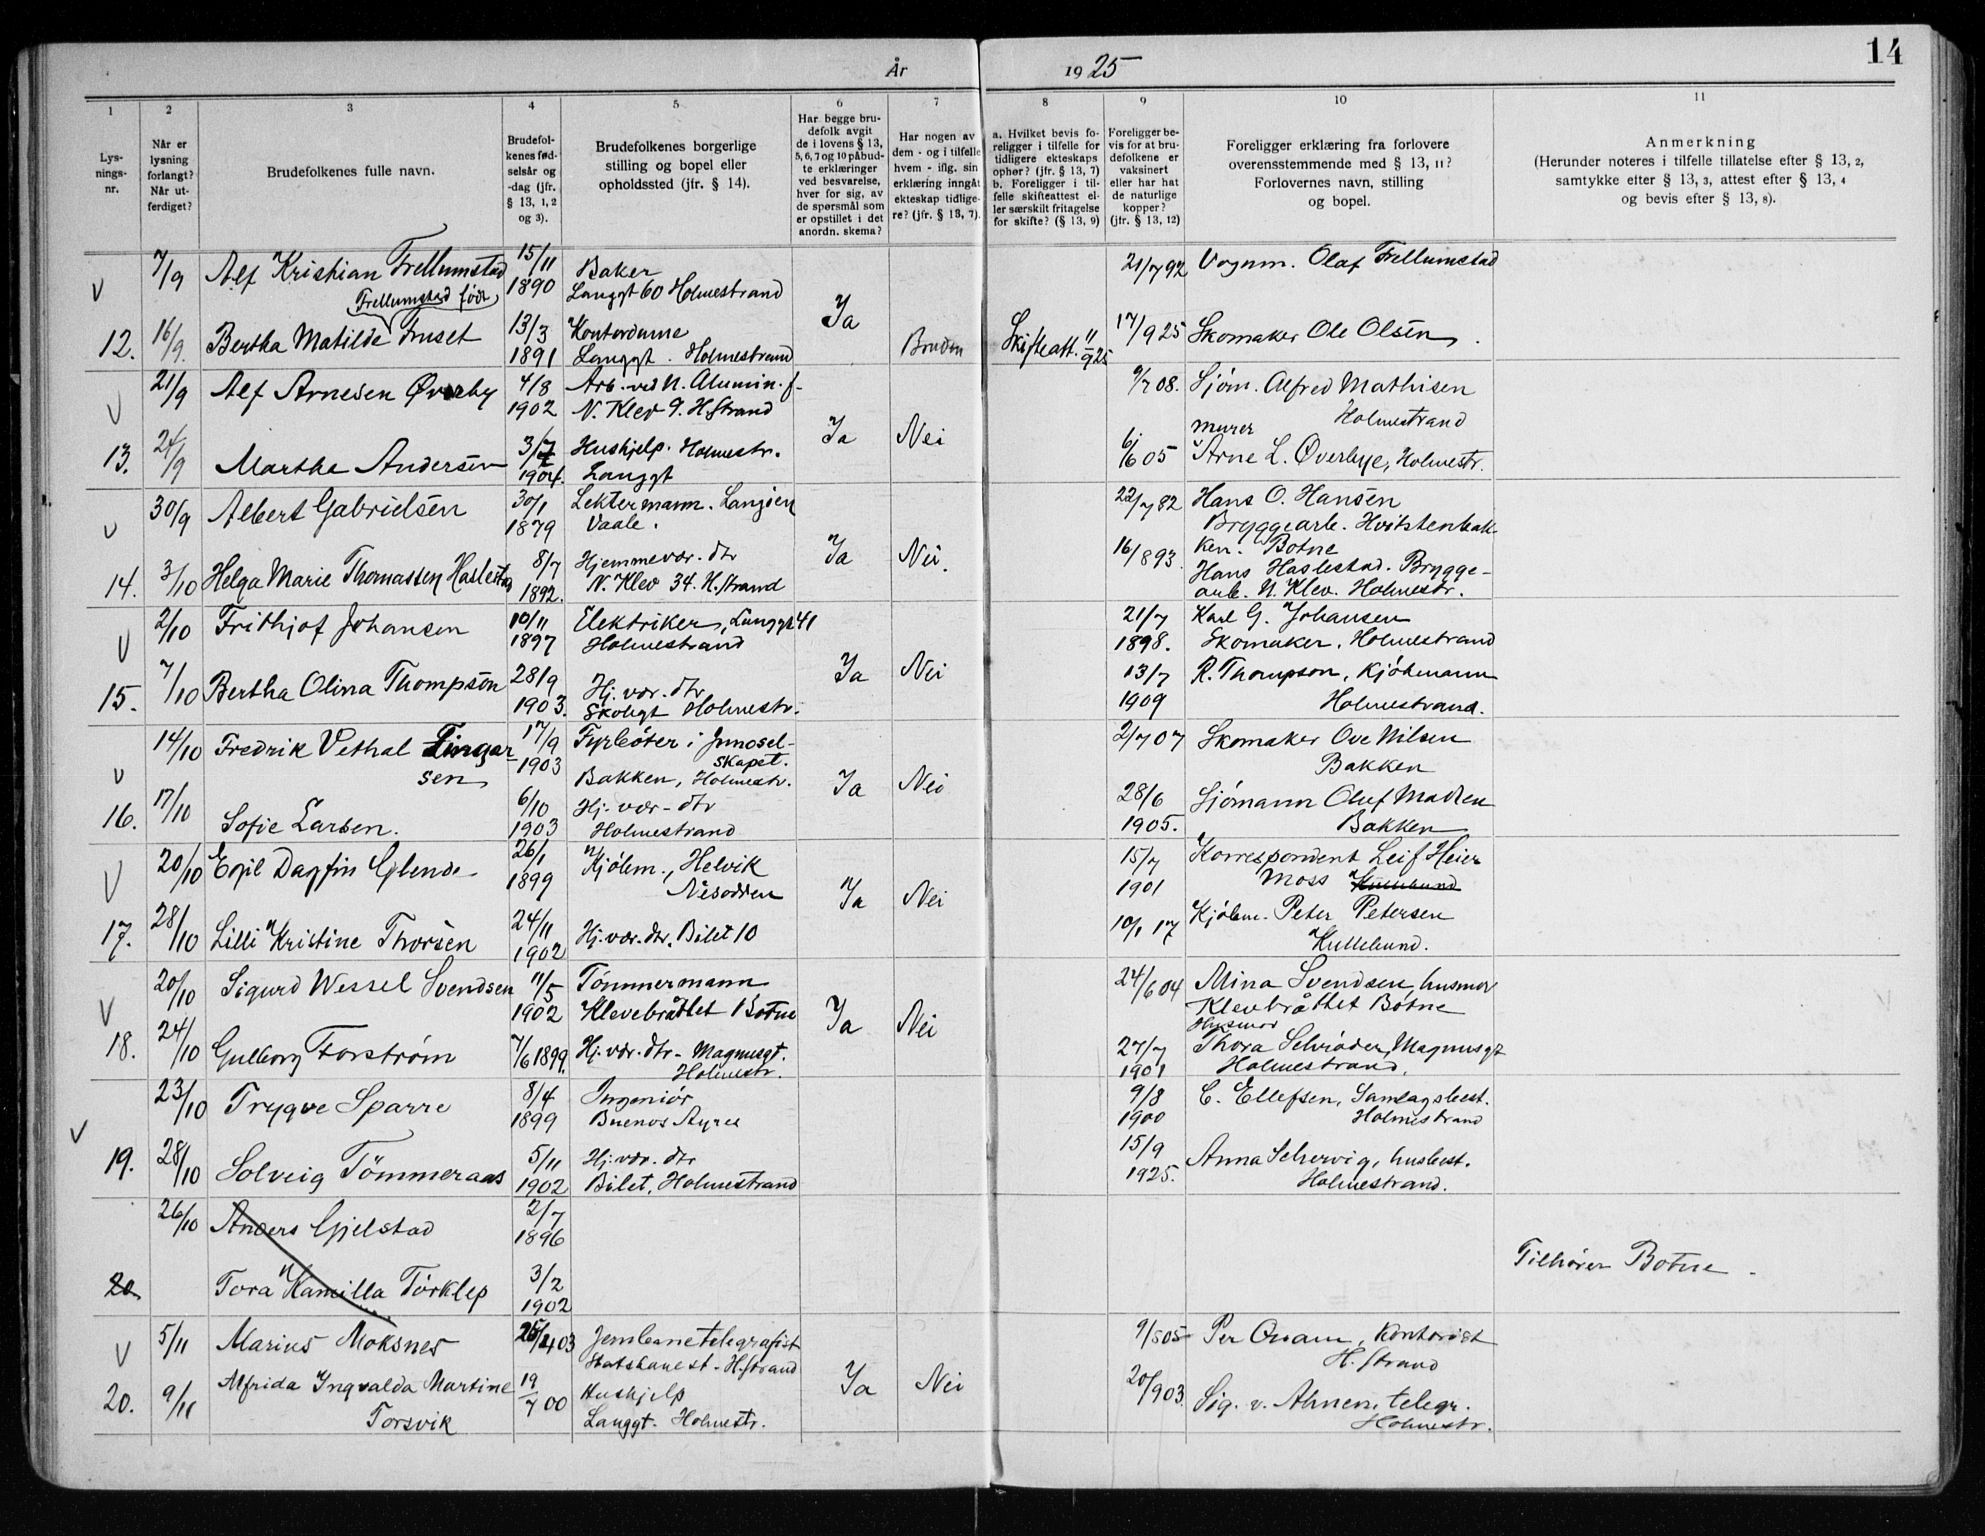 14
År 1925
1 2 3 4 5 6 7 8 9 10 11
Lysningsnr.
Når er lysning forlangt? Når utferdiget?
Brudefolkenes fulle navn.
Brudefolkenes fødselsår og -dag (jfr. § 13, 1, 2 og 3).
Brudefolkenes borgerlige stilling og bopel eller opholdssted (jfr. § 14).
Har begge brudefolk avgit de i lovens § 13, 5, 6, 7 og 10 påbudte erklæringer ved besvarelse, hver for sig, av de spørsmål som er opstillet i det anordn. skema?
Har nogen av dem - og i tilfelle hvem - iflg. sin erklæring inngått ekteskap tidligere? (jfr. § 13, 7).
a. Hvilket bevis foreligger i tilfelle for tidligere ekteskaps ophør? (jfr. § 13, 7) b. Foreligger i tilfelle skifteattest eller særskilt fritagelse for skifte? (§ 13, 9)
Foreligger bevis for at brudefolkene er vaksinert eller har hat de naturlige kopper? (jfr. § 13, 12)
Foreligger erklæring fra forlovere overensstemmende med § 13, 11? Forlovernes navn, stilling og bopel.
Anmerkning (Herunder noteres i tilfelle tillatelse efter § 13, 2, samtykke efter § 13, 3, attest efter § 13, 4 og bevis efter § 13, 8).
V 7/9 Alf Kristian Frellumstad 15/11 1890 Baker Langgt 60 Holmestrand 21/7 92 Vognm. Olaf Frellumstad
Frellumstad født
12. 16/9. Bertha Matilde Fuset 13/3 1891 Kontordame Langgt. Holmestrand Ja Bruden Skifteatt. 11/9 25 17/9 25 Skomaker Ole Olsen.
V 21/9 Alf Arnesen Øverby 4/8 1902 Arb. ved N. Alumin. f. N. Klev 9. H.strand 9/7 08. Sjøm. Alfred Mathisen Holmestrand
13. 24/9 Marthe Andersen 3/7 1904. Hushjelp. Holmestr. Langgt Ja Nei 6/6 05 murer Arne L. Øverbye, Holmestr.
V 30/9 Albert Gabrielsen 30/1 1879 Lektermann. Langøen Vaale. 22/7 82 Hans O. Hansen Bryggearb. Hvitstenbakken. Botne
14. 3/10 Helga Marie Thomassen Haslestad 8/7 1892. Hjemmevær. dtr N. Klev 34. H.strand Ja Nei. 16/8 93 Hans Haslestad. Bryggearb. N. Klev. Holmestr.
V 2/10 Frithjof Johansen 10/11 1897 Elektriker, Langgt 41 Holmestrand 21/7 1898. Karl G. Johansen Skomaker. Holmestrand
15. 7/10 Bertha Olina Thompson 28/9 1903. Hj. vær. dtr Skolegt Holmestr. Ja Nei 13/7 1909 R. Thompson, Kjøbmann Holmestrand.
V 14/10 Fredrik Vethal Fingarsen 17/9 1903 Fyrbøter i Bakken, Holmestr. 2/7 07 Skomaker Ove Nilsen Bakken
16. 17/10 Sofie Larsen. 6/10 1903 Hj. vær - dtr Holmestrand Ja Nei 28/6 1905. Sjømann Oluf Madsen Bakken
V 20/10 Egil Dagfin Glende 26/1 1899 Kjøbm., Helvik Nesodden 15/7 1901 Korrespondent Leif Heier Moss
17. 28/10 Lilli Kristine Thorsen 24/11 1902 Hj. vær. dtr. Bilet 10 Ja Nei 10/1 17 Kjøbm. Peter Petersen Kullebund.
V 20/10 Sigurd Wessel Svendsen 11/5 1902 Tømmermann Klevebråttet Botne 24/6 04 Mina Svendsen, husmor Klevbråttet Botne
18. 24/10 Gulborg Forstrøm 7/6 1899. Hj. vær. dtr - Magnusgt. Holmestr. Ja Nei 27/7 1901 Husmor Thora Schrøder, Magnusgt Holmestrand.
V 23/10 Trygve Sparre 8/4 1899 Ingeniør Buenos Ayres 9/8 1900 C. Ellefsen, Samlagsbest. Holmestrand
19. 28/10 Solveig Tömmeraas 5/11 1902 Hj. vær. dtr Bilet, Holmestrand 15/9 1925. Anna Schervig, husbest. Holmestrand.
26/10 Anders Gjelstad 2/7 1896
20 Tora Kamilla Törklep 3/2 1902 Tilhører Botne.
V 5/11 Marius Moksnes 25/4 03 Jernbanetelegrafist H.strand 9/5 05 Per Quam, Kontorist H.strand
20. 9/11 Alfrida Ingvalda Martine Torsvik 19/7 00 Hushjelp Langgt. Holmestr. Ja Nei 20/9 03. Sig. v. Ahnen, telegr. Holmestr.